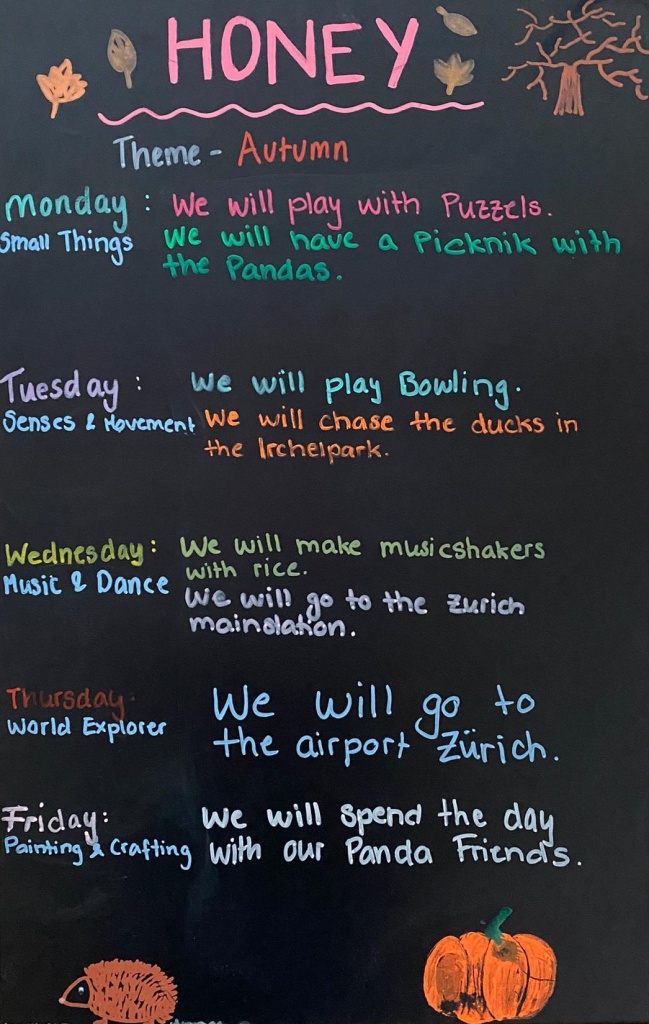 HONEY
Theme - Autumn
Monday : We will play with Puzzels.
Small Things We will have a Picknik with
the Pandas.
Tuesday : We will play Bowling.
Senses & Movement We will chase the ducks in
the Irchelpark.
Wednesday : We will make musicshakers
with rice.
Music & Dance We will go to the Zurich
mainstation.
Thursday: We will go to
World Explorer the airport Zürich.
Friday: We will spend the day
Painting & Crafting with our Panda Friends.